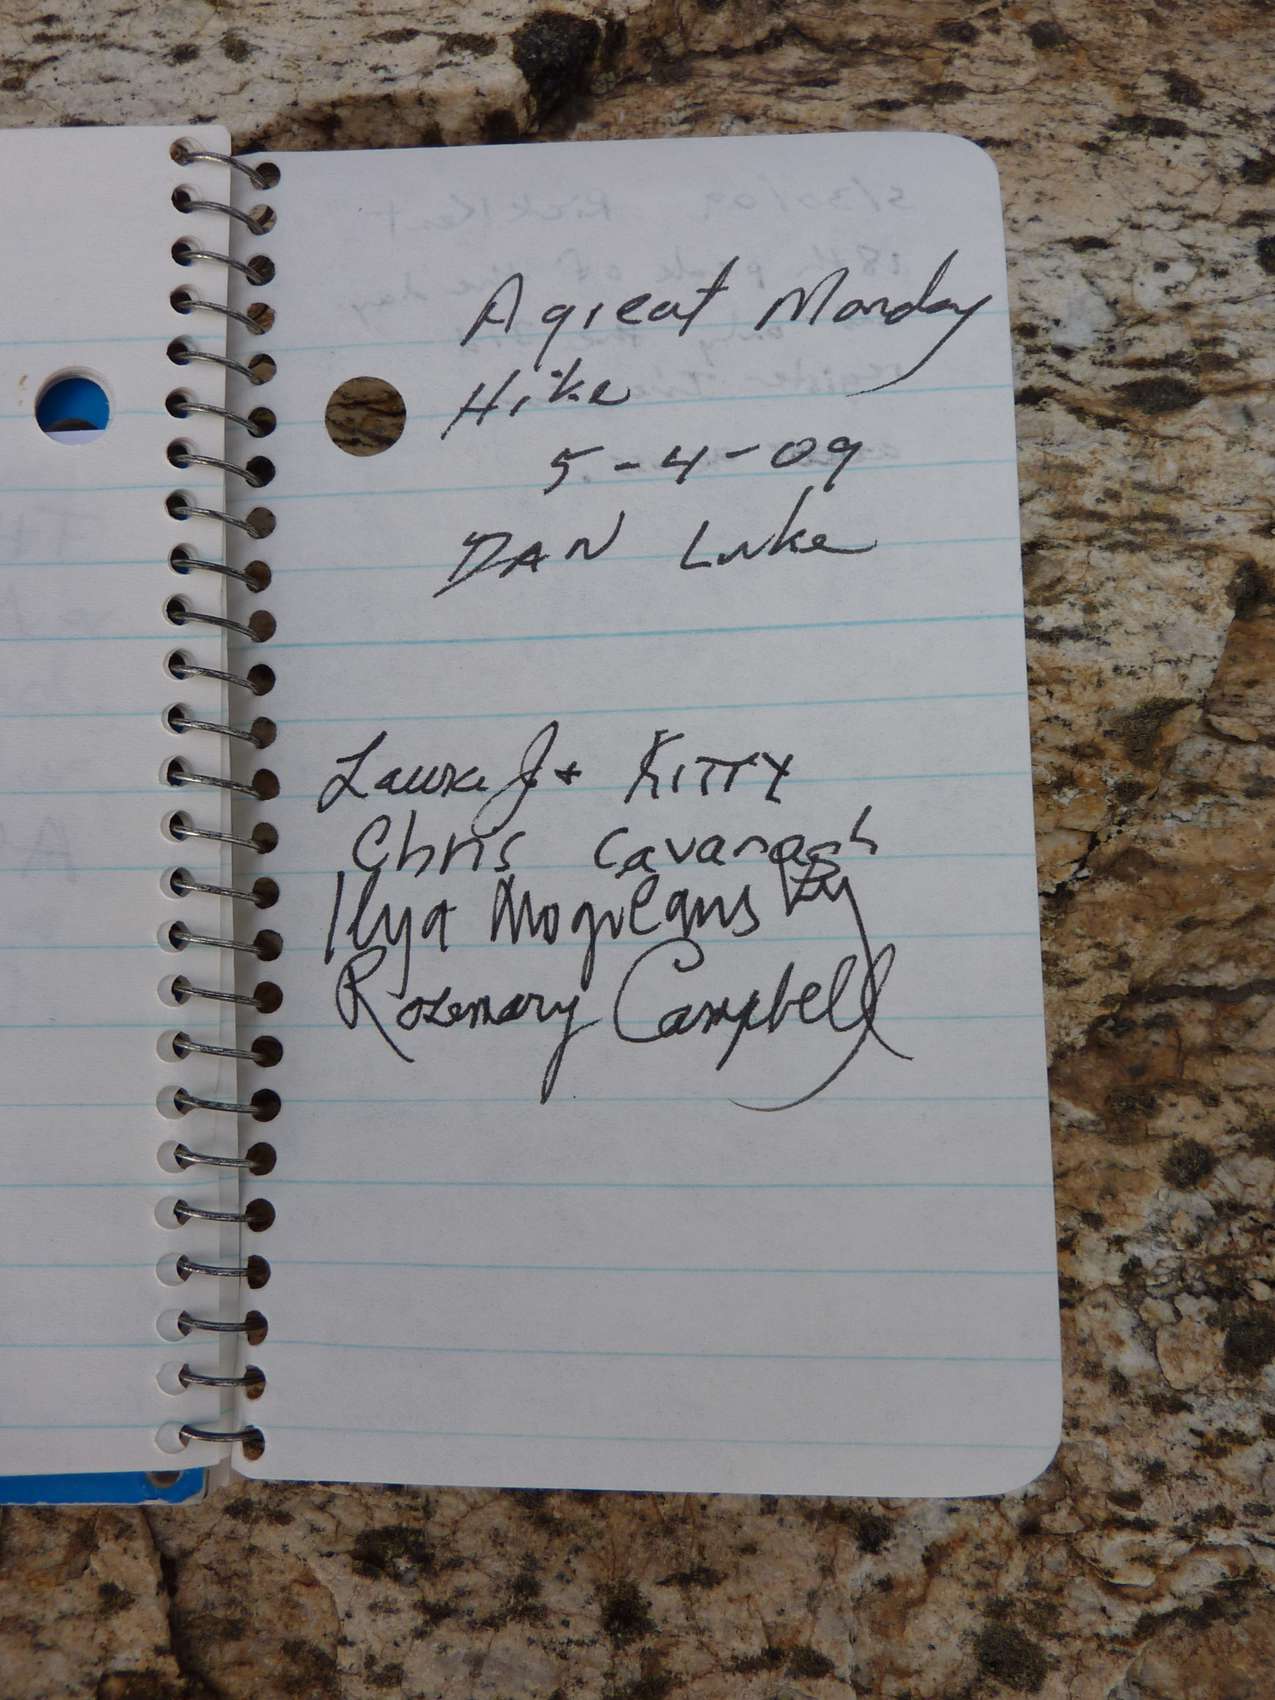 A great Monday
Hike
5-4-09
DAN Luke
Laura J + KITTY
Chris Cavanagh
Ilya Mogilansky
Rosemary Campbell